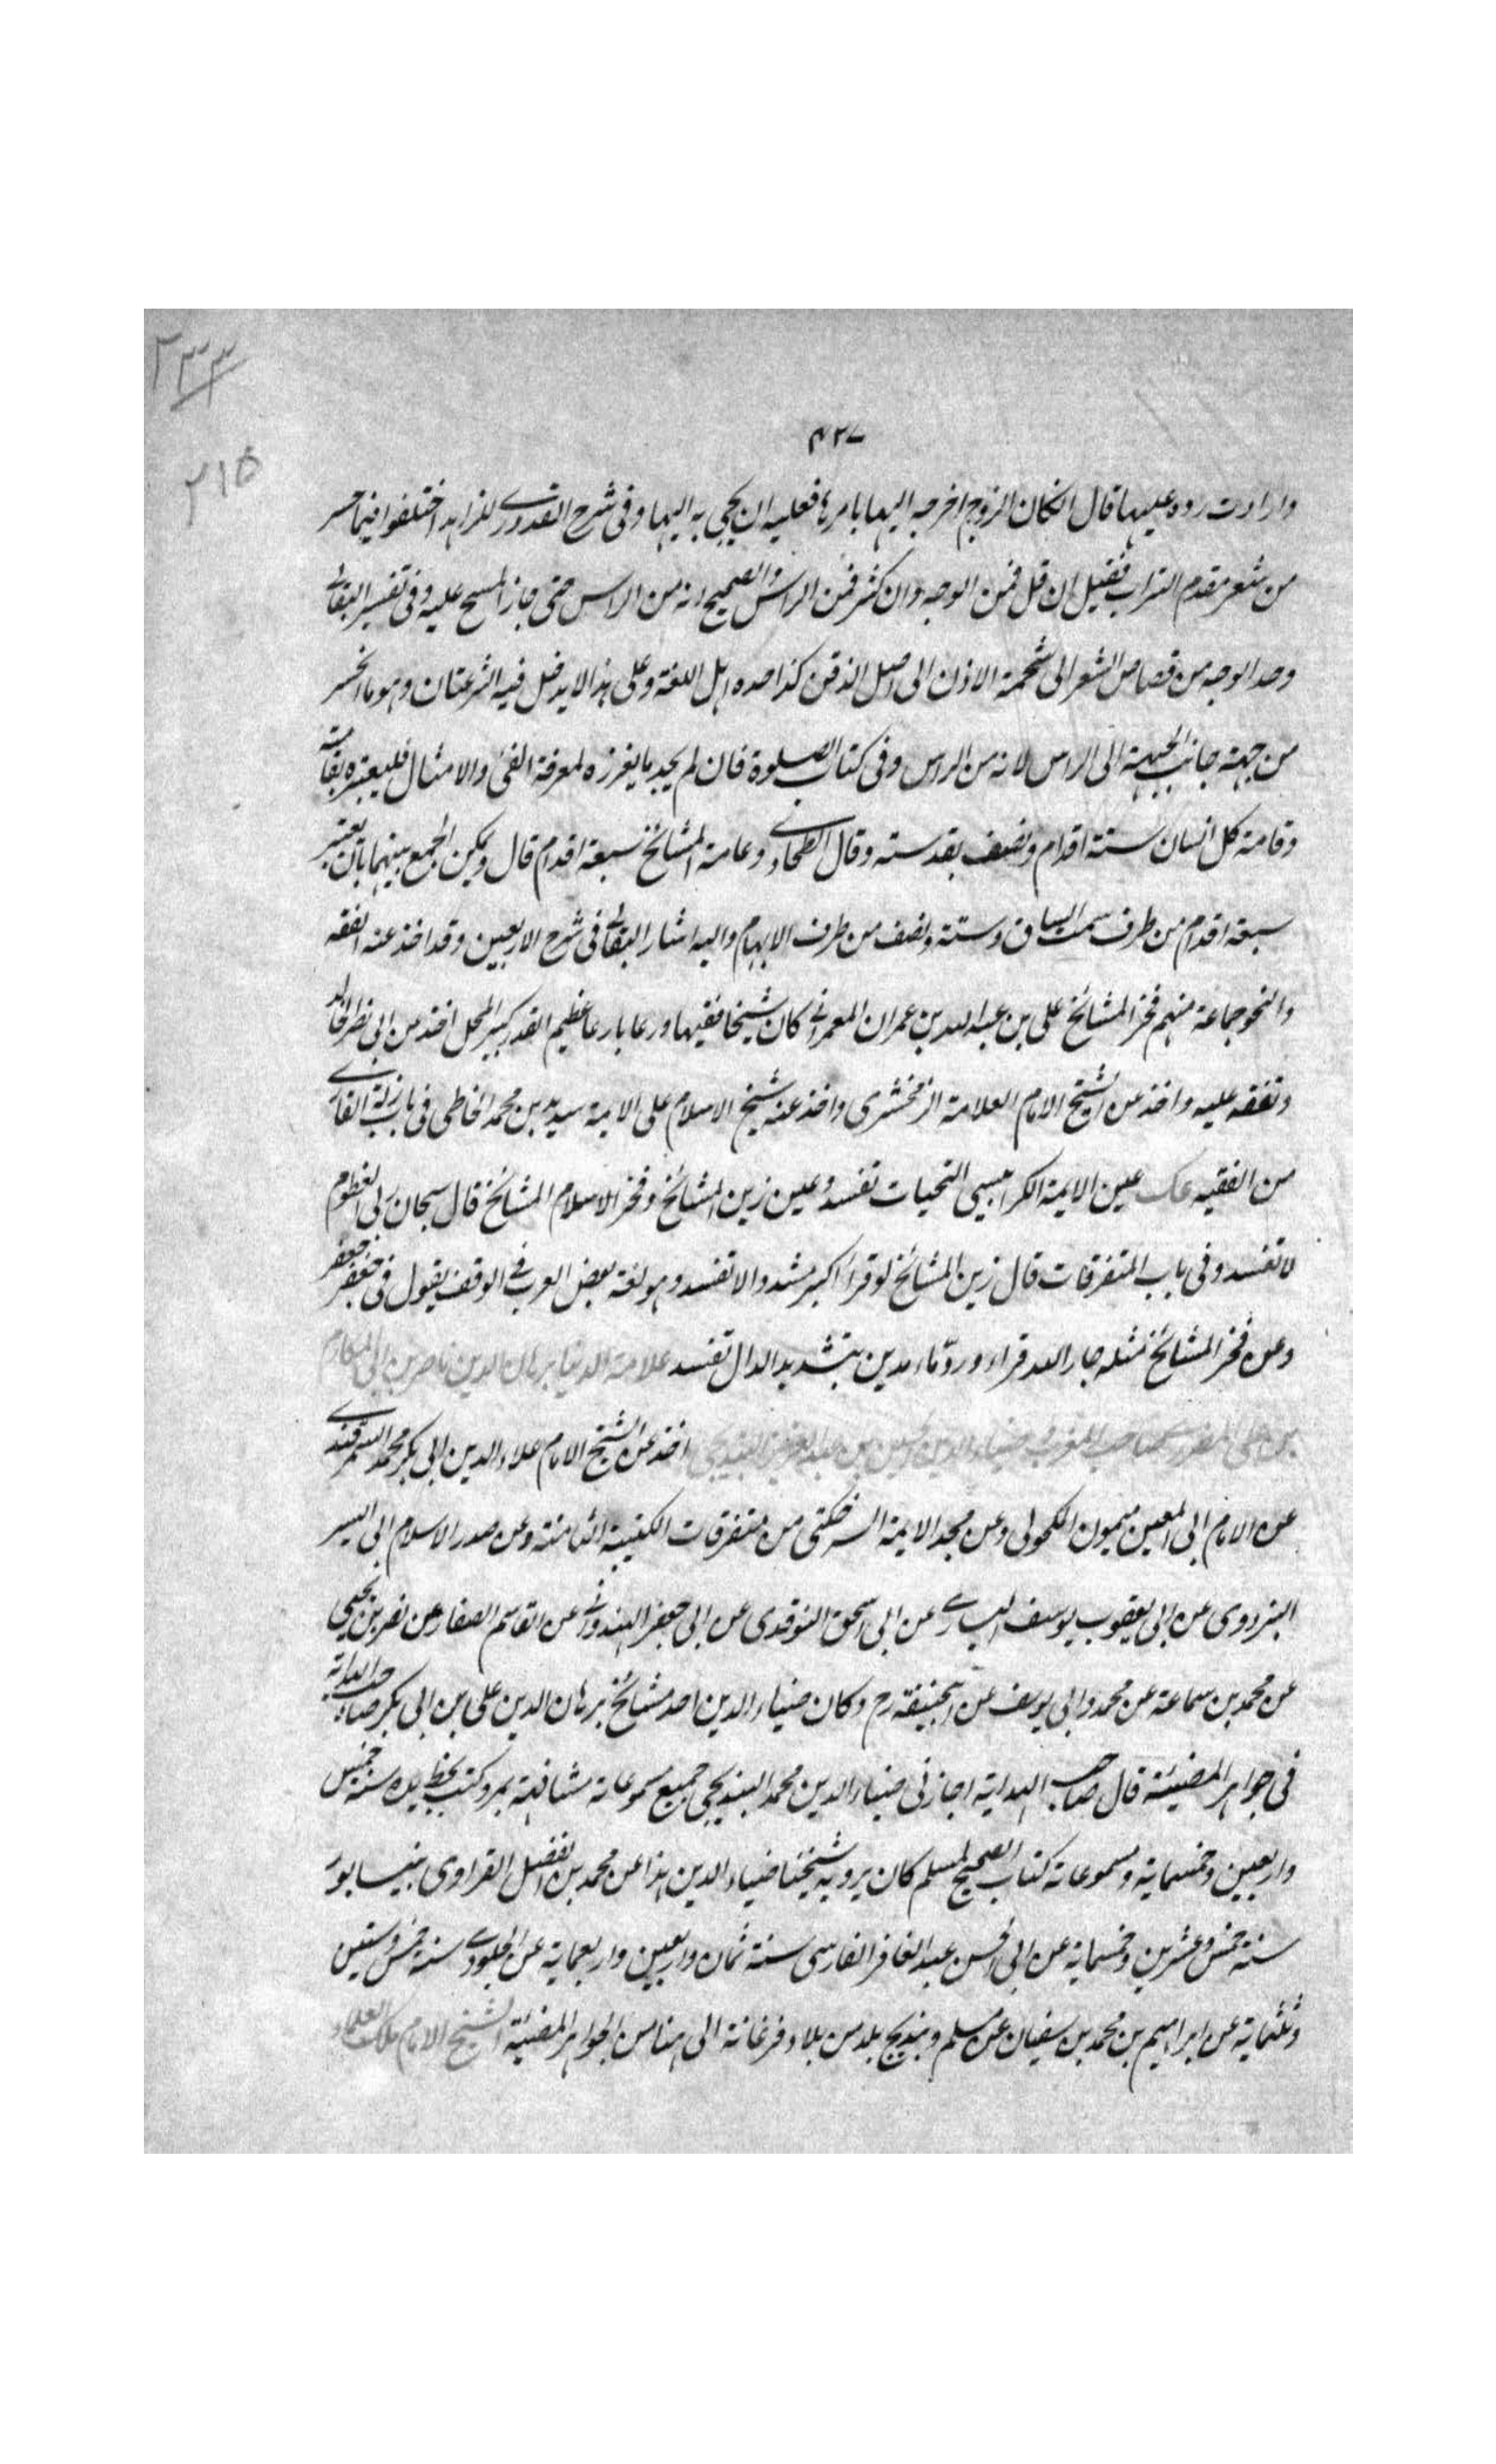 ٢٣٣
٢١٥
٤٢٧
وارادت رده عليها قال ان كان الزوج اخرجه اليها بامرها فعليه ان يجئ به اليها وفى شرح القدورى للزاهد اختلفوا فيما انحسر
من شعر مقدم الراس فقيل ان قل فمن الوجه وان كثر فمن الراس والصحيح انه من الراس حتى جاز المسح عليه وفى تفسير البقالى
وحد الوجه من قصاص الشعر الى شحمة الاذن الى اصل الذقن كذا حده اهل اللغة وعلى هذا لا يدخل فيه النزعتان وهو ما انحسر
من جهة جانب الجبهة الى الراس لانه من الراس وفى كتاب الصلوة فان لم يجد ما يغرزه لمعرفة الفئ والامثال فليعتبره بقامته
وقامة كل انسان ستة اقدام ونصف بقدمه وقال الطحاوى وعامة المشائخ سبعة اقدام قال ويمكن الجمع بينهما بان يعتبر
سبعة اقدام من طرف سمت الساق وستة ونصف من طرف الابهام واليه اشار البقالى فى شرح الاربعين وقد اخذ عنه الفقه
والنحو جماعة منهم فخر المشائخ على بن عبد الله بن عمران المعمرانى كان شيخا فقيها ورعا بارعا عظيم القدر كبير المحل اخذ عن ابى
وتفقه عليه واخذ عن الشيخ الامام العلامة الزمخشرى واخذ عنه شيخ الاسلام على الايمة سديد بن محمد الخاطى فى باب زلة القارى
من الفقيه عك عين الايمة الكرابيسى التحيات تفسد وعين زين المشائخ وفخر الاسلام المشائخ قال سبحان ربى العظوم
لا تفسد وفى باب المتفرقات قال زين المشائخ لو قرأ اكبر مشددا لا تفسد وهو لغة بعض العرب فى الوقف يقول فى جعفر جعفر
وعن فخر المشائخ مثله جار الله قراء وردّ ماء مدين بتشديد الدال تفسد علامة الدنيا برهان الدين ناصر بن ابى المكارم
بن على المطرزى صاحب المغرب ضياء الدين محمد بن الحسين بن عبد العزيز البنديجى اخذ عن الشيخ الامام علاء الدين ابى بكر محمد السمرقندى
عن الامام ابى المعين ميمون المكحولى وعن مجد الايمة السرخكتى من متفرقات الكتيبة الثامنة وعن صدر الاسلام ابى اليسر
البزدوى عن ابى يعقوب يوسف السيارى عن ابى اسحق النوقدى عن ابى جعفر الهندوانى عن القاسم الصفار عن نصر بن يحيى
عن محمد بن سماعة عن محمد وابى يوسف عن ابيحنيفة رح وكان ضياء الدين احد مشائخ برهان الدين على بن ابى بكر صاحب الهداية
فى جواهر المضيئة قال صاحب الهداية اجازنى ضياء الدين محمد البنديجى جميع مسموعاته مشافهة بمرو وكتب بخط يده سنة خمس
واربعين وخمسماية ومسموعاته كتاب الصحيح لمسلم كان يرويه شيخنا ضياء الدين هذا عن محمد بن الفضل الفراوى بنيسابور
سنة خمس وعشرين وخمسماية عن ابى الحسن عبد الغافر الفارسى سنة ثمان واربعين واربعماية عن الجلودى سنة خمس وستين
وثلثماية عن ابراهيم بن محمد بن سفيان عن مسلم وبنديج بلد من بلاد فرغانة الى هنا من الجواهر المضيئة الشيخ الامام ملك العلماء